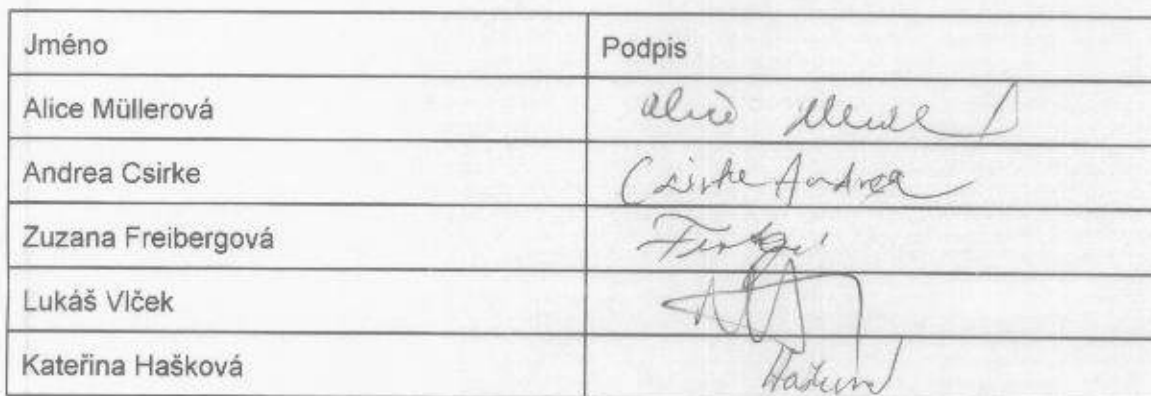 Jméno Podpis
Alice Müllerová
Andrea Csirke Csirke Andrea
Zuzana Freibergová
Lukáš Vlček
Kateřina Hašková